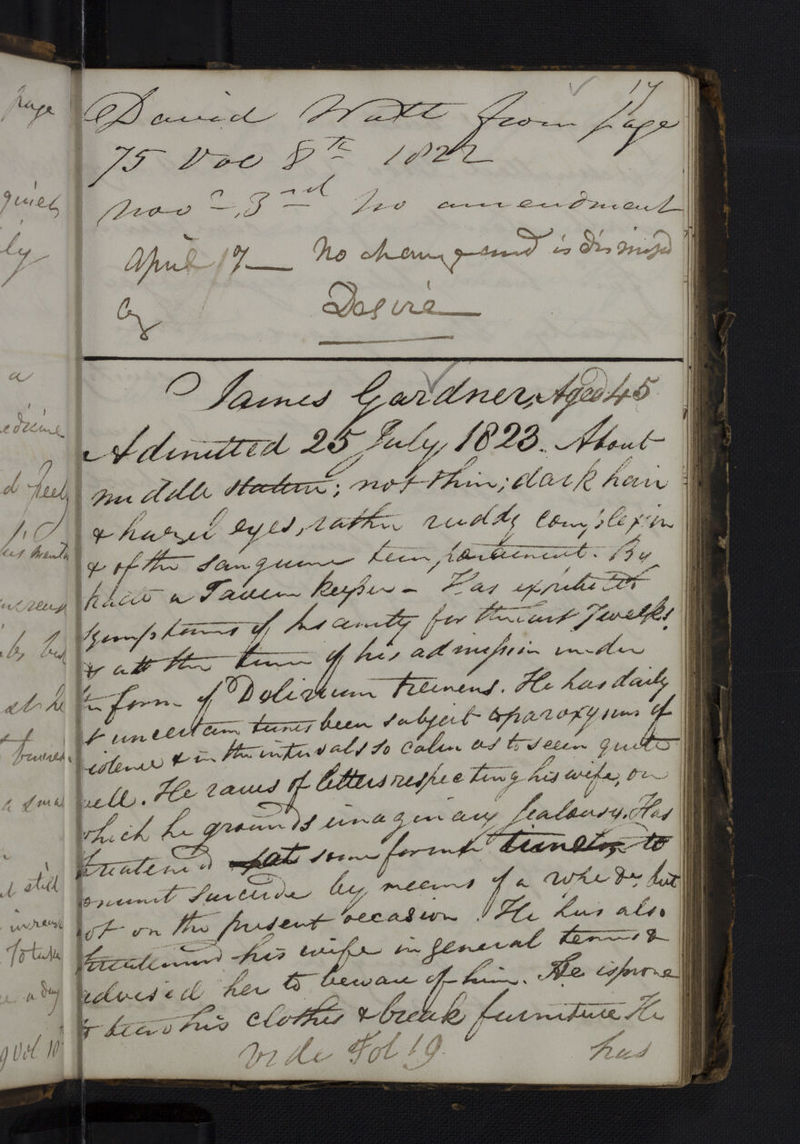 17
David Watt from page
75 Vol 8th 1822
Novr 3rd No amendment
April 17 — No change and is dismissed
by Desire
James Gardner, Aged 45
Admitted 25 July, 1823. About
middle stature; not thin; dark hair
& hazel eyes, rather ruddy complexion
& of the sanguine temperament. By
trade a Tavern keeper - Has exhibited
symptoms of Insanity for the last 7 weeks
& at the time of his admission under
the form of Delirium tremens. He has daily
& uncertain times been subject to paroxysms of
violence & in the intervals so calm as to seem quite
well. He raves of letters respecting his wife, on
which he grounds imaginary Jealousy. Has
threatened at some former times, to
commit suicide by means of a rope &c, but
not on the present occasion. He has also
threatened his wife in general terms &
advised her to beware of him. He is prone
to tear his clothes & break furniture He
vide Fol 19 has
page
quiet
ly
a
medicine
d freely
his
increase
bed
at he
a small
still
increase
To take
a day
Vol 10